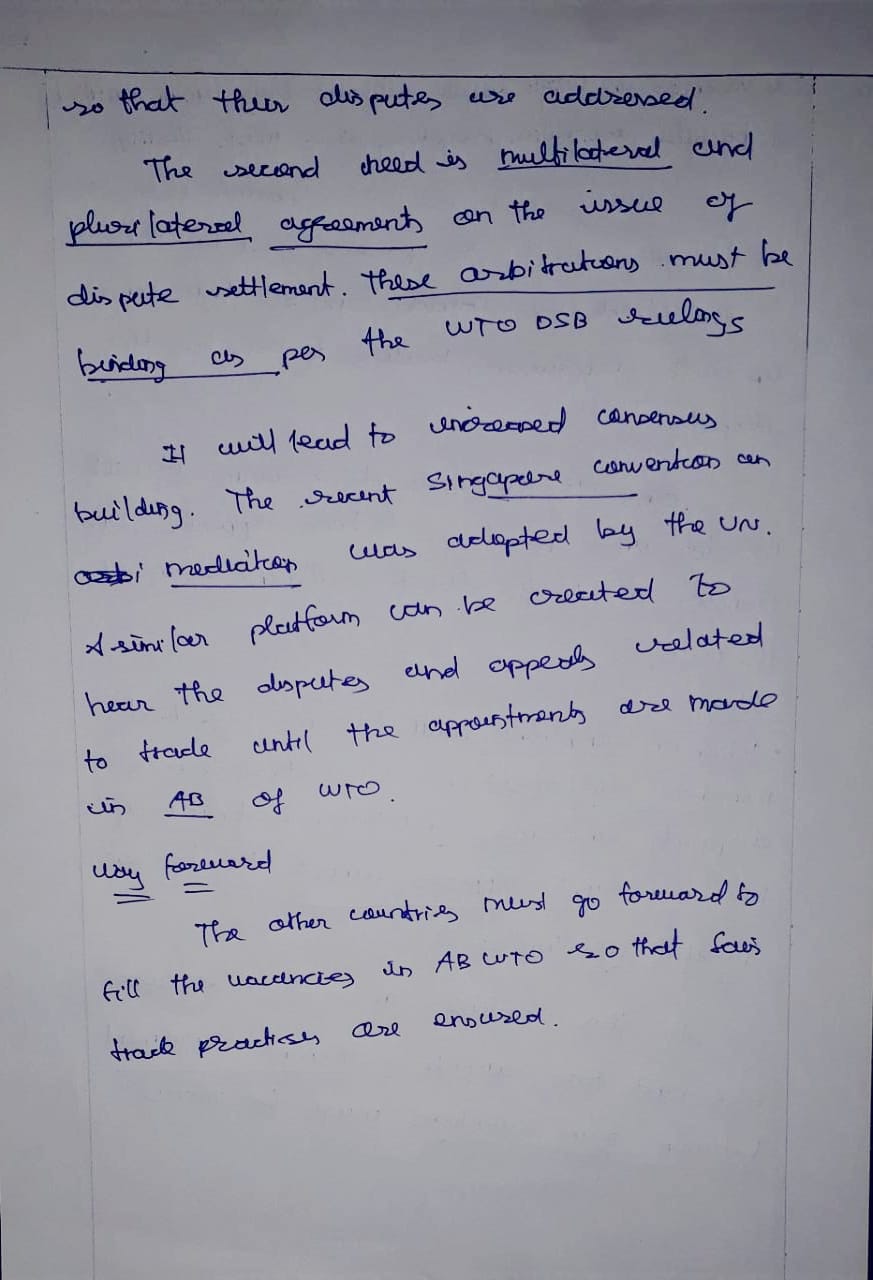 so that their disputes are addressed.
The second need is multilateral and
plurilateral agreements on the issue of
dispute settlement. These arbitrations must be
binding as per the WTO DSB rulings
It will lead to increased consensus
building. The recent Singapore convention on
mediation was adopted by the UN.
A similar platform can be created to
hear the disputes and appeals related
to trade until the appointments are made
in AB of WTO.
Way forward
The other countries must go forward to
fill the vacancies in AB WTO so that fair
trade practises are ensured.